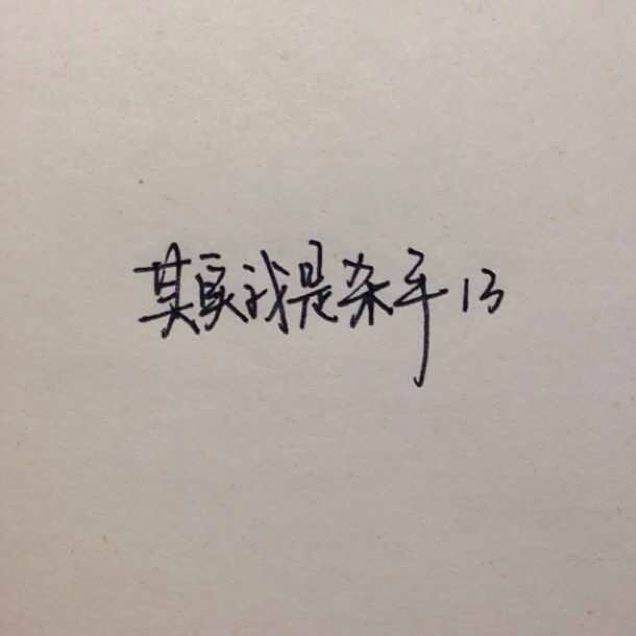 其实我是杀手13